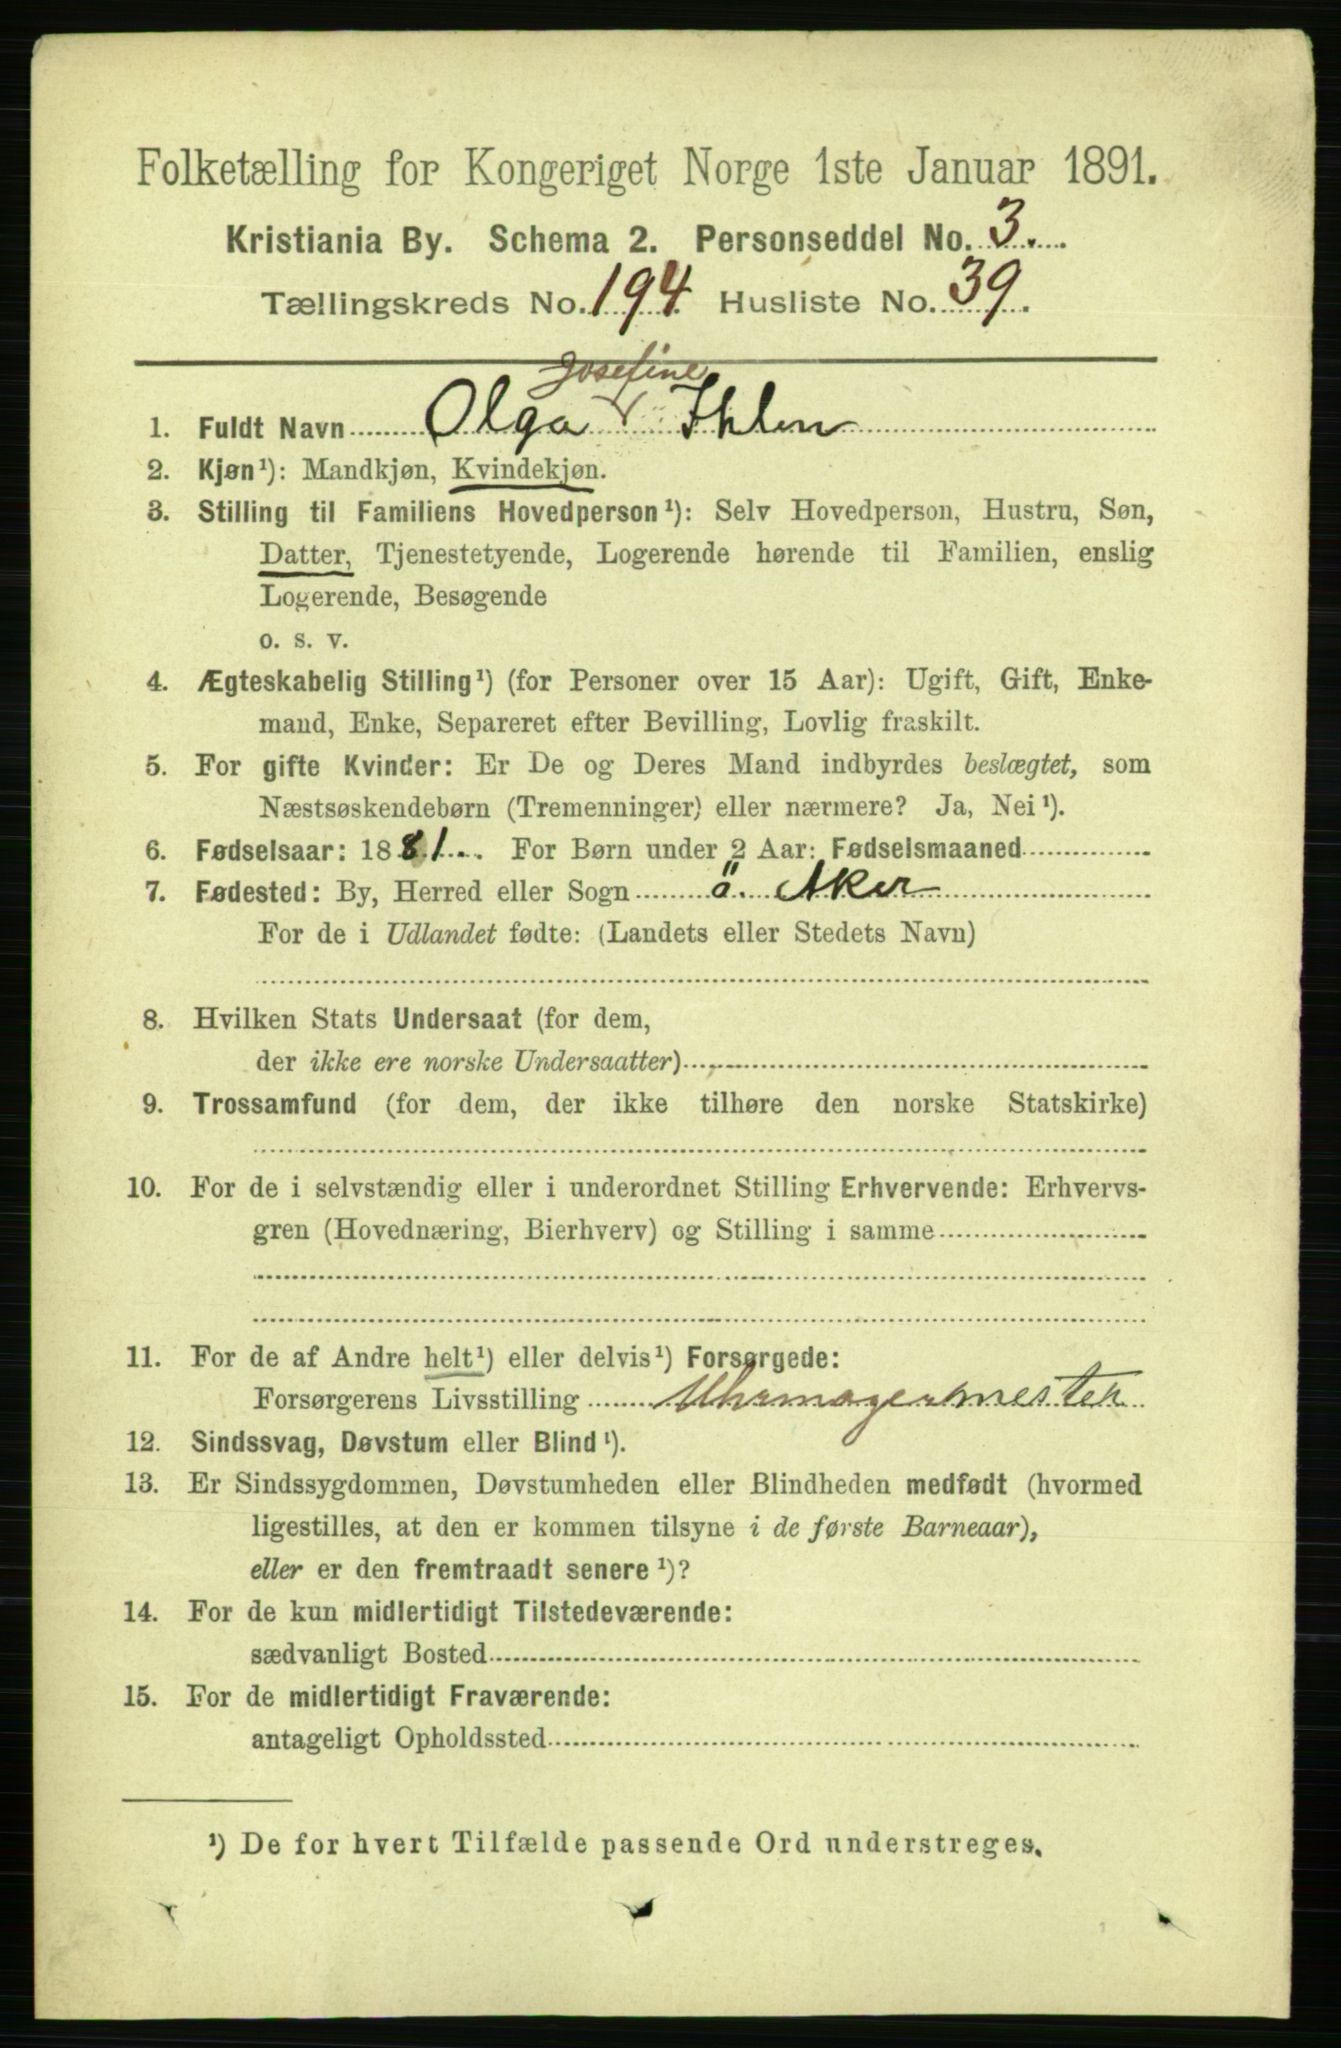 Folketælling for Kongeriget Norge 1ste Januar 1891.
Kristiania By. Schema 2. Personseddel No. 3.
Tællingskreds No. 194 Husliste No. 39.
Josefine
1. Fuldt Navn Olga V Ihlen
2. Kjøn¹): Mandkjøn, Kvindekjøn.
3. Stilling til Familiens Hovedperson¹): Selv Hovedperson, Hustru, Søn,
Datter, Tjenestetyende, Logerende hørende til Familien, enslig
Logerende, Besøgende
o. s. v.
4. Ægteskabelig Stilling¹) (for Personer over 15 Aar): Ugift, Gift, Enke-
mand, Enke, Separeret efter Bevilling, Lovlig fraskilt.
5. For gifte Kvinder: Er De og Deres Mand indbyrdes beslægtet, som
Næstsøskendebørn (Tremenninger) eller nærmere? Ja, Nei¹).
6. Fødselsaar: 1881. For Børn under 2 Aar: Fødselsmaaned
7. Fødested: By, Herred eller Sogn ö. Aker
For de i Udlandet fødte: (Landets eller Stedets Navn)
8. Hvilken Stats Undersaat (for dem,
der ikke ere norske Undersaatter)
9. Trossamfund (for dem, der ikke tilhøre den norske Statskirke)
10. For de i selvstændig eller i underordnet Stilling Erhvervende: Erhvervs-
gren (Hovednæring, Bierhverv) og Stilling i samme
11. For de af Andre helt¹) eller delvis¹) Forsørgede:
Forsørgerens Livsstilling Uhrmagermester
12. Sindssvag, Døvstum eller Blind¹).
13. Er Sindssygdommen, Døvstumheden eller Blindheden medfødt (hvormed
ligestilles, at den er kommen tilsyne i de første Barneaar),
eller er den fremtraadt senere¹)?
14. For de kun midlertidigt Tilstedeværende:
sædvanligt Bosted
15. For de midlertidigt Fraværende:
antageligt Opholdssted
¹) De for hvert Tilfælde passende Ord understreges.